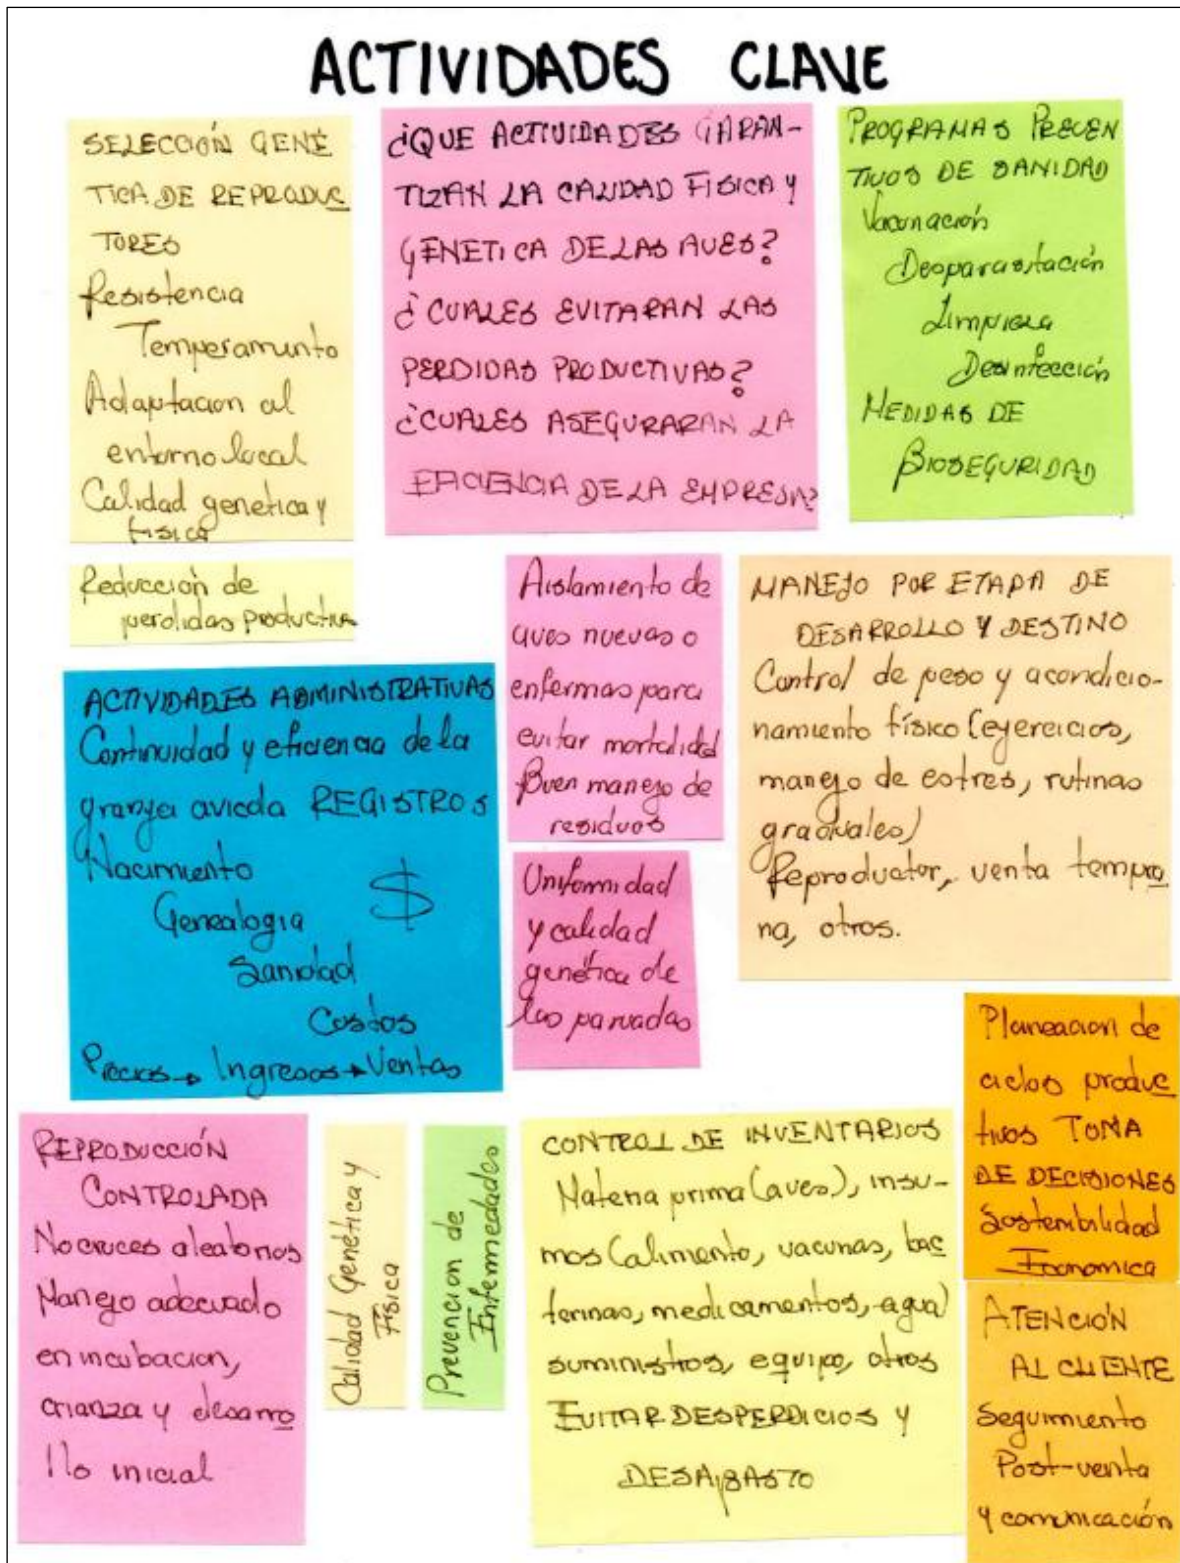 ACTIVIDADES CLAVE
SELECCIÓN GENÉ
TICA DE REPRODUC
TORES
Resistencia
Temperamento
Adaptacion al
entorno local
Calidad genetica y
fisica
Reducción de
perdidas productiva
¿QUE ACTIVIDADES GARAN-
TIZAN LA CALIDAD FISICA Y
GENETICA DE LAS AVES?
¿CUALES EVITARAN LAS
PERDIDAS PRODUCTIVAS?
¿CUALES ASEGURARAN LA
EFICIENCIA DE LA EMPRESA?
PROGRAMAS PREVEN
TIVOS DE SANIDAD
Vacunación
Desparasitación
Limpieza
Desinfección
MEDIDAS DE
BIOSEGURIDAD
Aislamiento de
aves nuevas o
enfermas para
evitar mortalidad
Buen manejo de
residuos
MANEJO POR ETAPA DE
DESARROLLO Y DESTINO
Control de peso y acondicio-
namiento físico (ejercicios,
manejo de estres, rutinas
graduales)
Reproductor, venta tempra
na, otros.
ACTIVIDADES ADMINISTRATIVAS
Continuidad y eficiencia de la
granja avicola REGISTROS
Nacimiento
Genealogia $
Sanidad
Costos
Precios → Ingresos → Ventas
Uniformidad
y calidad
genética de
las parvadas
Planeacion de
ciclos produc
tivos TOMA
DE DECISIONES
Sostenibilidad
Economica
REPRODUCCIÓN
CONTROLADA
No cruces aleatorios
Manejo adecuado
en incubacion,
crianza y desarro
llo inicial
Calidad Genética y
Física
Prevencion de
Enfermedades
CONTROL DE INVENTARIOS
Materia prima (aves), insu-
mos (alimento, vacunas, bac
terinas, medicamentos, agua)
suministros, equipo, otros
EVITAR DESPERDICIOS Y
DESABASTO
ATENCIÓN
AL CLIENTE
Seguimiento
Post-venta
y comunicación